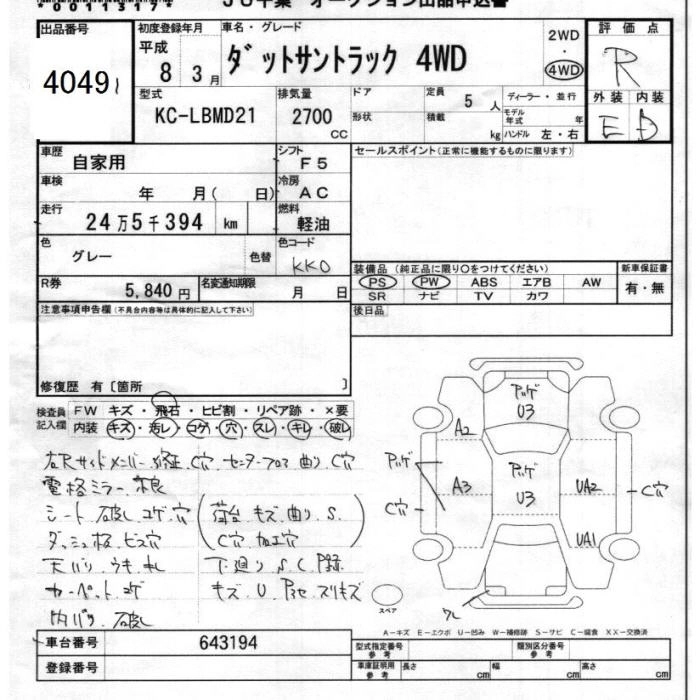 出品番号
4049
初度登録年月
平成
8 3月
車名・グレード
ダットサントラック 4WD
2WD
・
4WD
評価点
R
外装 内装
E D
型式
KC-LBMD21
排気量
2700
CC
ドア
形状
定員
5 人
積載
kg
ディーラー・並行
モデル年式 年
ハンドル 左・右
車歴
自家用
シフト
F5
セールスポイント(正常に機能するものに限ります)
車検
年 月( 日)
冷房
AC
走行
24万5千394 km
燃料
軽油
色
グレー
色替
色コード
KK0
R券
5,840円
名変通知期限
月 日
装備品 (純正品に限り○をつけてください)
PS PW ABS エアB AW
SR ナビ TV カワ
新車保証書
有・無
注意事項申告欄(不具合内容等は具体的に記入して下さい)
後日品
修復歴 有[箇所 ]
検査員
記入欄
FW キズ・飛石・ヒビ割・リペア跡・×要
内装 キズ・汚レ・コゲ・穴・スレ・キレ・破レ
右Rサイドメンバー修正 C穴 センターフロア曲り C穴
電格ミラー不良
シート 破レ コゲ穴
荷台 キズ 曲り S.
C穴 加工穴
ダッシュ板 ビス穴
天バリ ウキ
下廻り S.C.
カーペット コゲ
キズ U
内バリ 破レ
アルゲ
U3
A2
アルゲ
アルゲ
U3
C穴
A3
UA2
C穴
UA1
スペア
ワレ
A-キズ E-エクボ U-凹み W-補修跡 S-サビ C-腐食 XX-交換済
車台番号
643194
登録番号
型式指定番号
参考
類別区分番号
参考
車庫証明用
参考
長さ cm
幅 cm
高さ cm